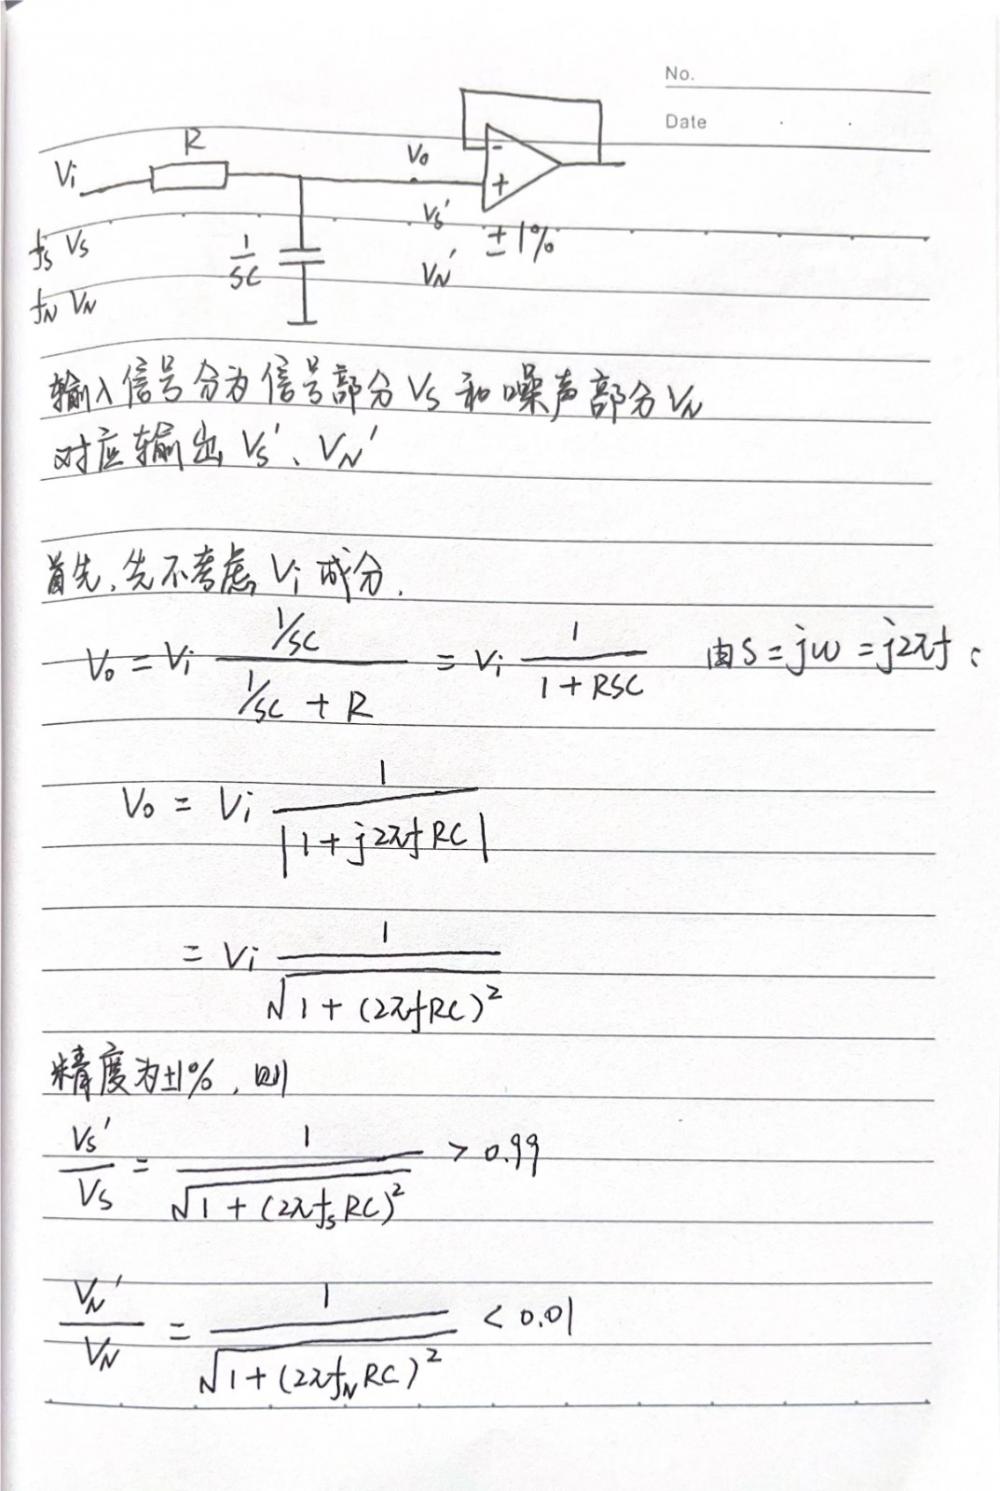 No.
Date
R
Vi
Vo
-
+
fs Vs
1/SC
Vs'
±1%
fN VN
VN'
输入信号分为信号部分 Vs 和噪声部分 VN
对应输出 Vs'、VN'
首先,先不考虑 Vi 成分.
Vo = Vi (1/SC)/(1/SC + R) = Vi 1/(1+RSC) 由S=jω=j2πf:
Vo = Vi 1/|1+j2πfRC|
= Vi 1/√(1+(2πfRC)²)
精度为±1%,则
Vs'/Vs = 1/√(1+(2πfsRC)²) > 0.99
VN'/VN = 1/√(1+(2πfNRC)²) < 0.01